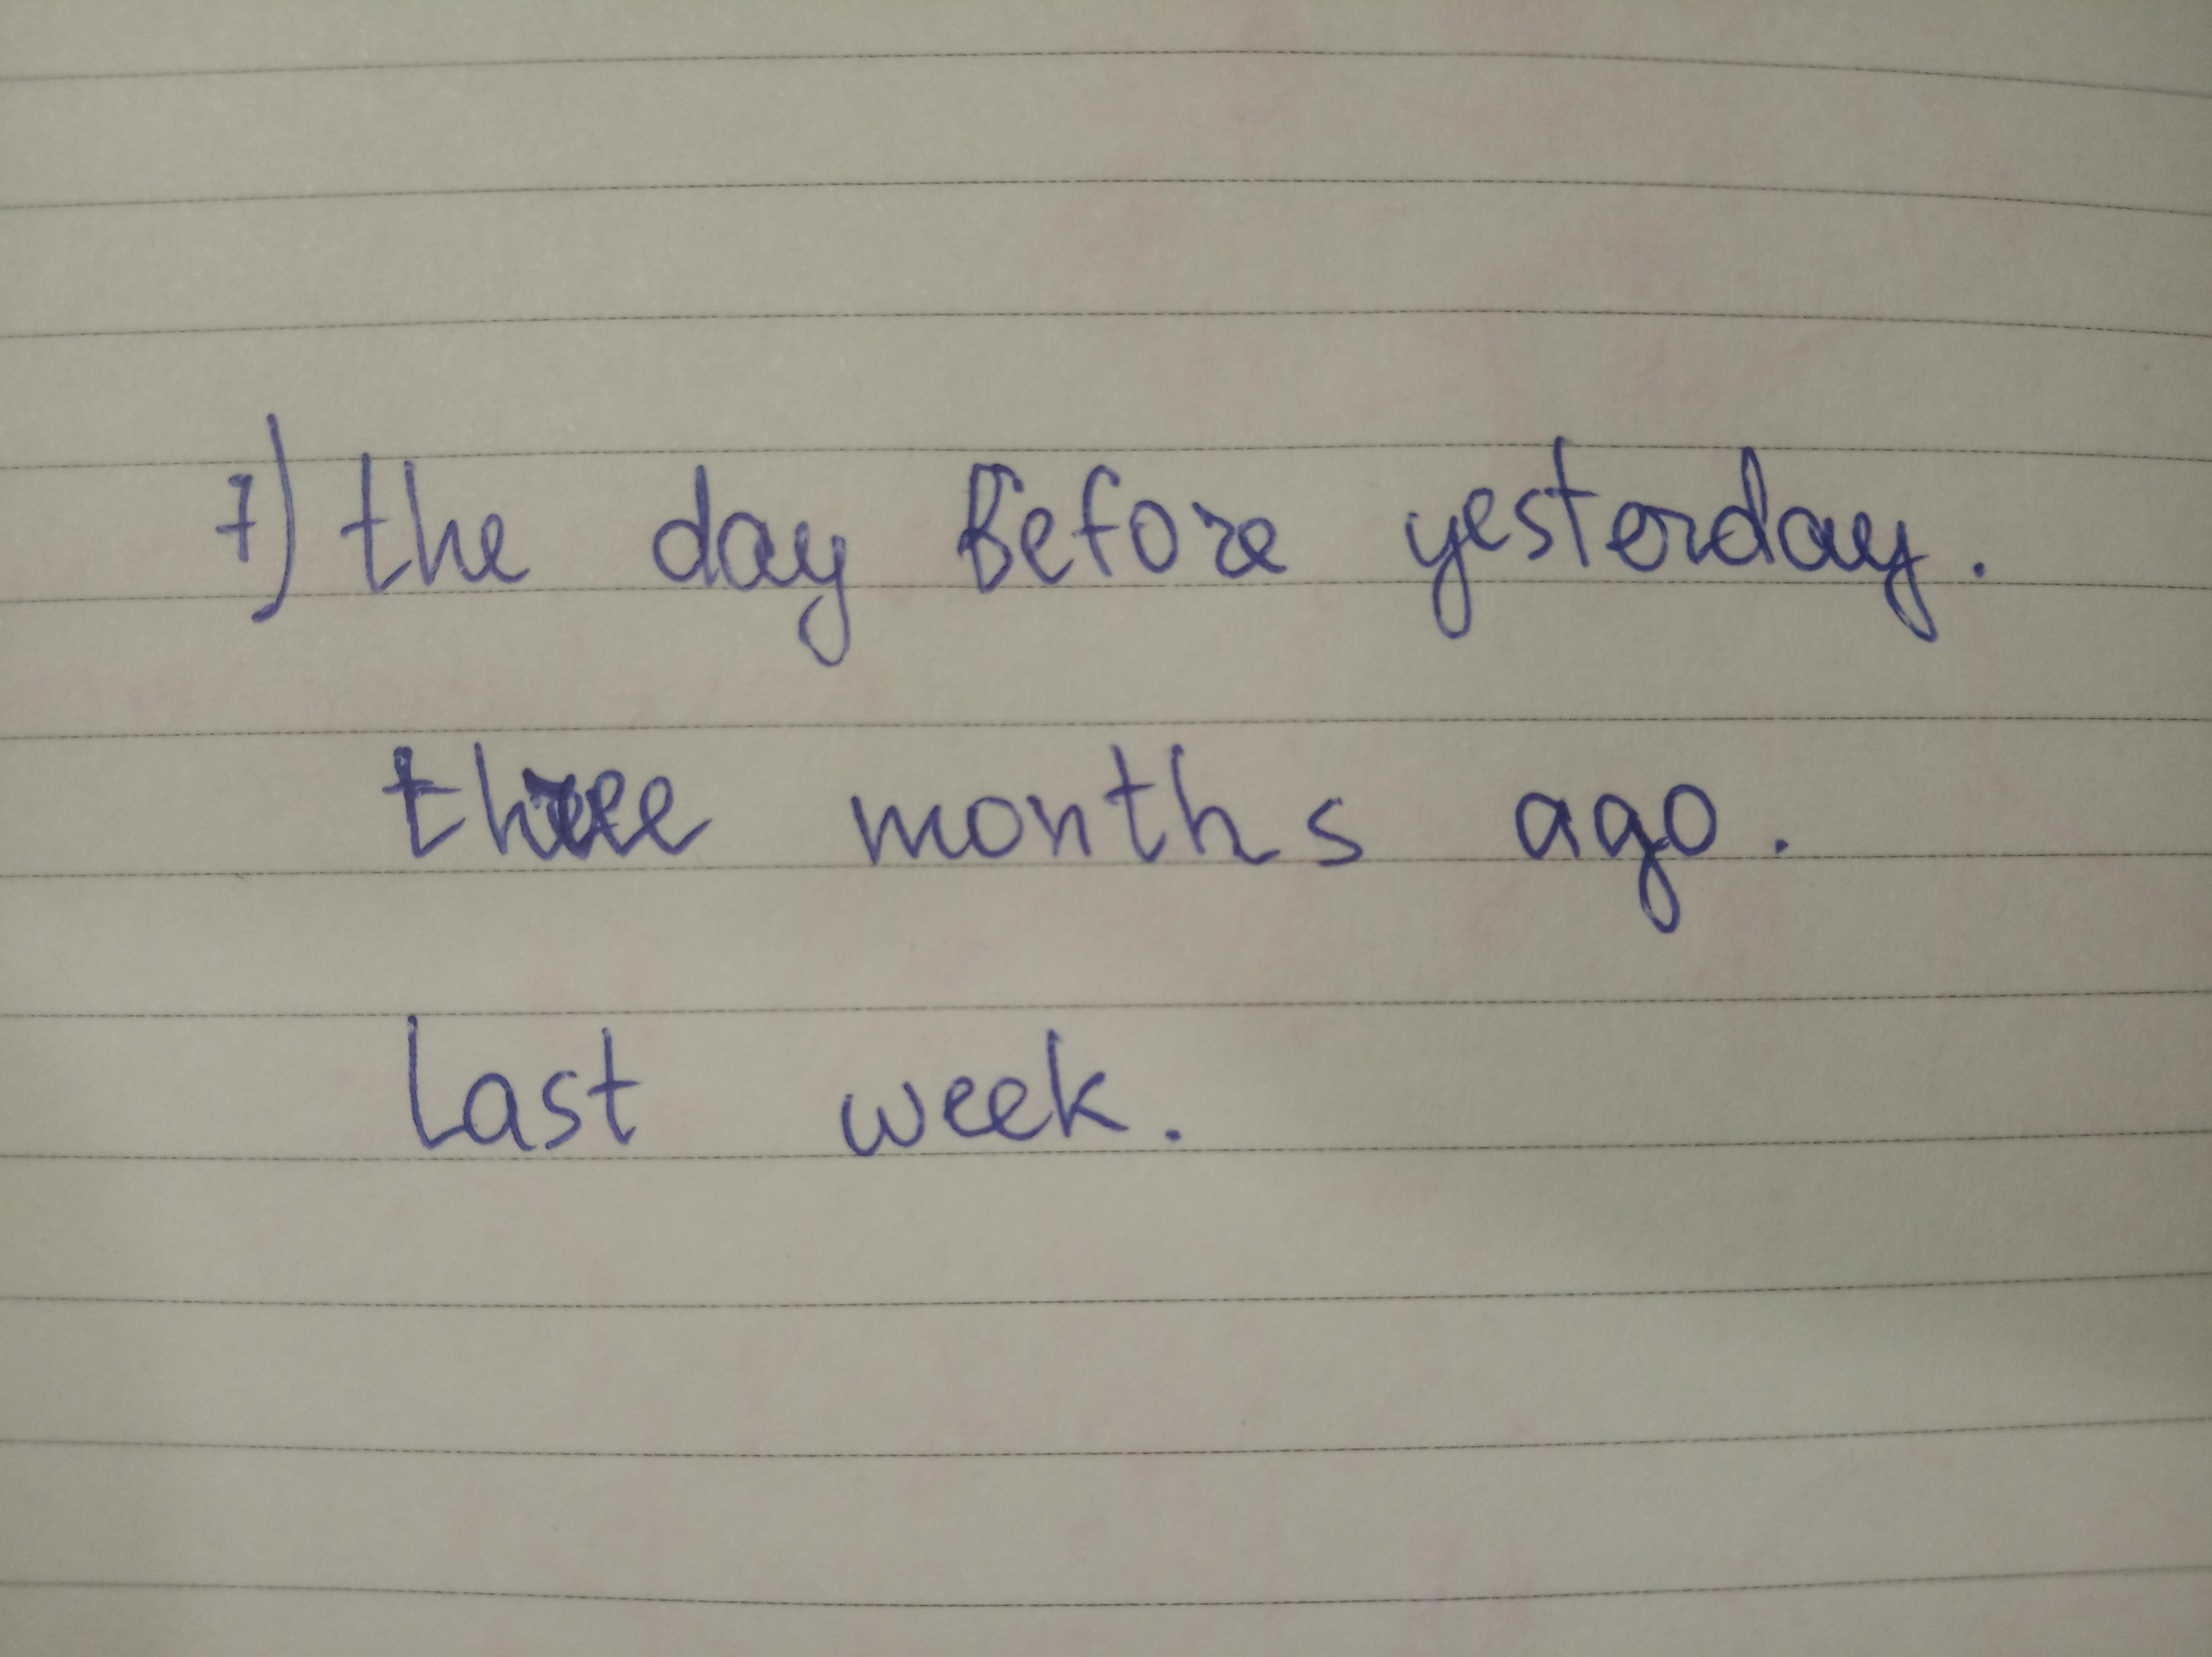 7) the day before yesterday.
three months ago.
last week.